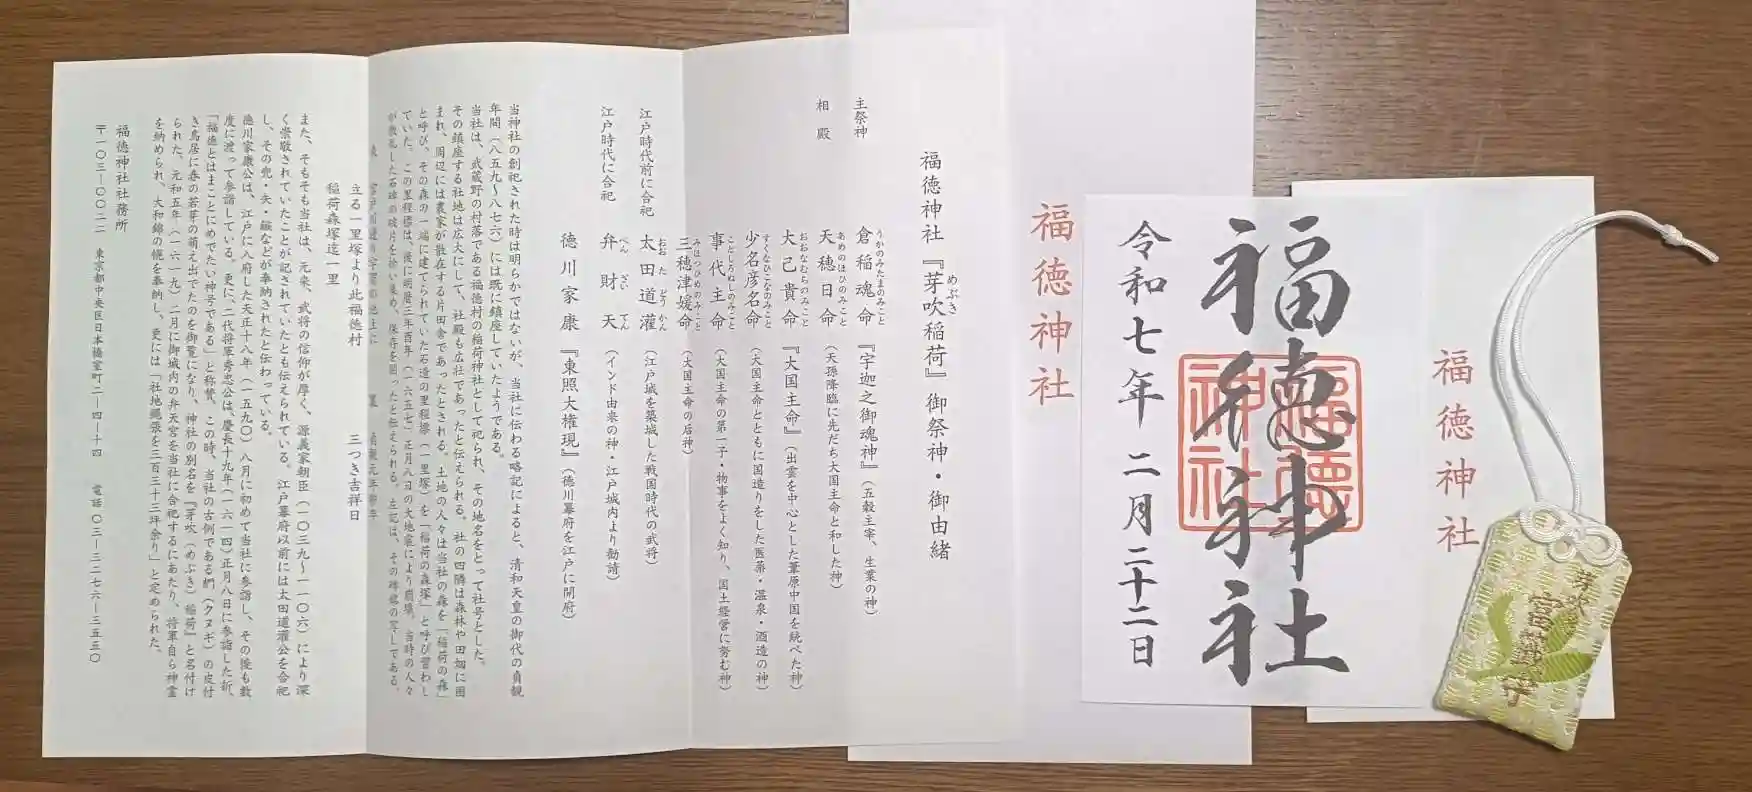 福徳神社『芽吹稲荷』御祭神・御由緒
めぶき
主祭神
倉稲魂命
うかのみたまのみこと
『宇迦之御魂神』(五穀主宰、生業の神)
相殿
天穂日命
あめのほひのみこと
(天孫降臨に先だち大国主命と和した神)
大己貴命
おおなむちのみこと
『大国主命』(出雲を中心とした葦原中国を統べた神)
少名彦名命
すくなひこなのみこと
(大国主命とともに国造りをした医薬・温泉・酒造の神)
事代主命
ことしろぬしのみこと
(大国主命の第一子・物事をよく知り、国土経営に努む神)
三穂津媛命
みほつひめのみこと
(大国主命の后神)
江戸時代前に合祀
太田道灌
おおたどうかん
(江戸城を築城した戦国時代の武将)
江戸時代に合祀
弁財天
べんざいてん
(インド由来の神・江戸城内より勧請)
徳川家康
『東照大権現』(徳川幕府を江戸に開府)
当神社の創祀された時は明らかではないが、当社に伝わる略記によると、清和天皇の御代の貞観
年間(八五九〜八七六)には既に鎮座していたようである。
当社は、武蔵野の村落である福徳村の稲荷神社として祀られ、その地名をとって社号とした。
その鎮座する社地は広大にして、社殿も広社であったと伝えられる。社の四隣は森林や田畑に囲
まれ、周辺には農家が散在する片田舎であったとされる。土地の人々は当社の森を「稲荷の森」
と呼び、その森の一端に建てられていた石造の里程標(一里塚)を「稲荷の森塚」と呼び習わし
ていた。この里程標は、後に明暦三年酉年(一六五七)正月八日の大地震により崩壊。当時の人々
が散乱した石碑の破片を拾い集め、保存を図ったと伝えられる。左記は、その碑銘の写しである。
立る一里塚より此福徳村 三つき吉祥日
稲荷森塚迄一里
また、そもそも当社は、元来、武将の信仰が厚く、源義家朝臣(一〇三九〜一一〇六)により深
く崇敬されていたことが記されていたとも伝えられている。江戸幕府以前には太田道灌公を合祀
し、その兜・矢・鏃などが奉納されたと伝わっている。
徳川家康公は、江戸に入府した天正十八年(一五九〇)八月に初めて当社に参詣し、その後も数
度に渡って参詣している。更に、二代将軍秀忠公は、慶長十九年(一六一四)正月八日に参詣した折、
「福徳とはまことにめでたい神号である」と称賛、この時、当社の古例である椚(クヌギ)の皮付
き鳥居に春の若芽の萌え出でたのを御覧になり、神社の別名を『芽吹(めぶき)稲荷』と名付け
られた。元和五年(一六一九)二月に御城内の弁天宮を当社に合祀するにあたり、将軍自ら神霊
を納められ、大和錦の幌を奉納し、更には「社地縄張を三百三十三坪余り」と定められた。
福徳神社社務所
〒一〇三ー〇〇二二 東京都中央区日本橋室町二ー四ー十四 電話〇三ー三二七六ー三五五〇
福徳神社
福徳神社
福徳神社
令和七年二月二十二日
福徳神社
芽吹
富籤守